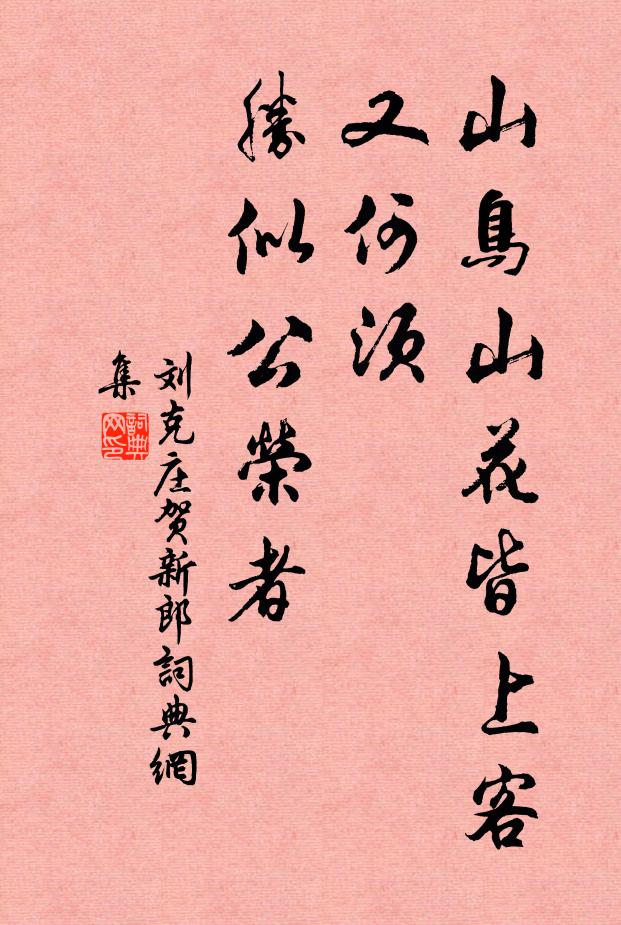 山鳥山花皆上客
又何須
勝似公榮者
刘克庄賀新郎詞典網
集
詞典
网印